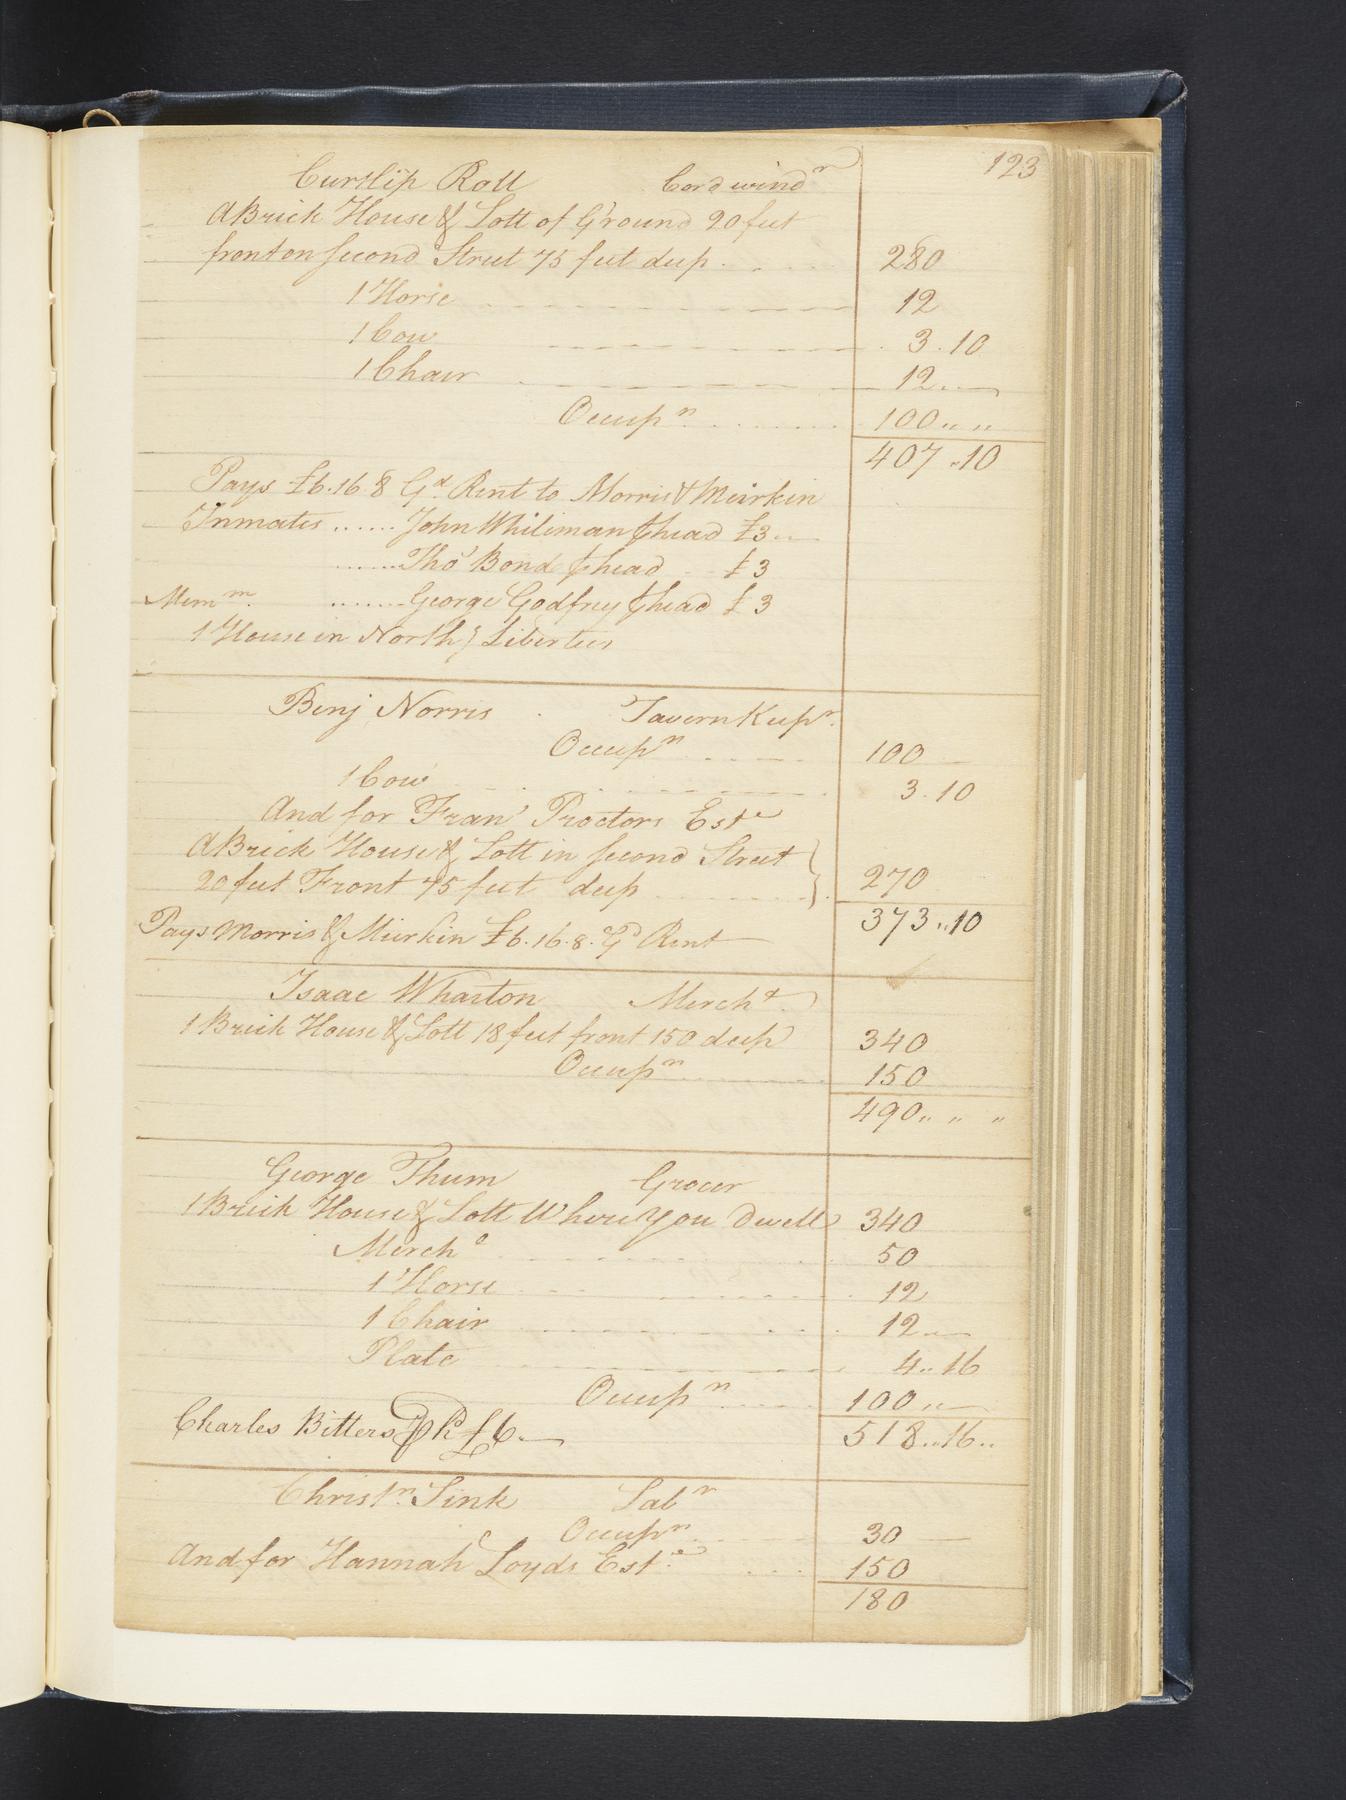 123
Curtlip Roll Cordwindr
A Brick House & Lott of Ground 20 feet
front on second Street 75 feet deep 280
1 Horse 12
1 Cow 3.10
1 Chair 12
Occupn 100 " "
407 " 10
Pays £6.16.8 Gd Rent to Morris & Meirkin
Inmates ...... John Whiliman phead £3
...... Tho Bond phead £3
Memm. ...... George Godfrey phead £3
1 House in North Liberties
Benj Norris Tavern Keepr.
Occupn 100
1 Cow 3.10
And for Fran Proctors Este
A Brick House & Lott in second Street
20 feet Front 75 feet deep 270
373 " 10
Pays Morris & Meirkin £6.16.8. Gd Rent
Isaac Wharton Mercht
1 Brick House & Lott 18 feet front 150 deep 340
Occupn 150
490 " " "
George Thum Grocer
1 Brick House & Lott Where You Dwell 340
Merche 50
1 Horse 12
1 Chair 12
Plate 4 " 16
Occupn 100
Charles Bitters ph £6
518 " 16
Christn. Sink Labr
Occupn 30
And for Hannah Loyds Este 150
180